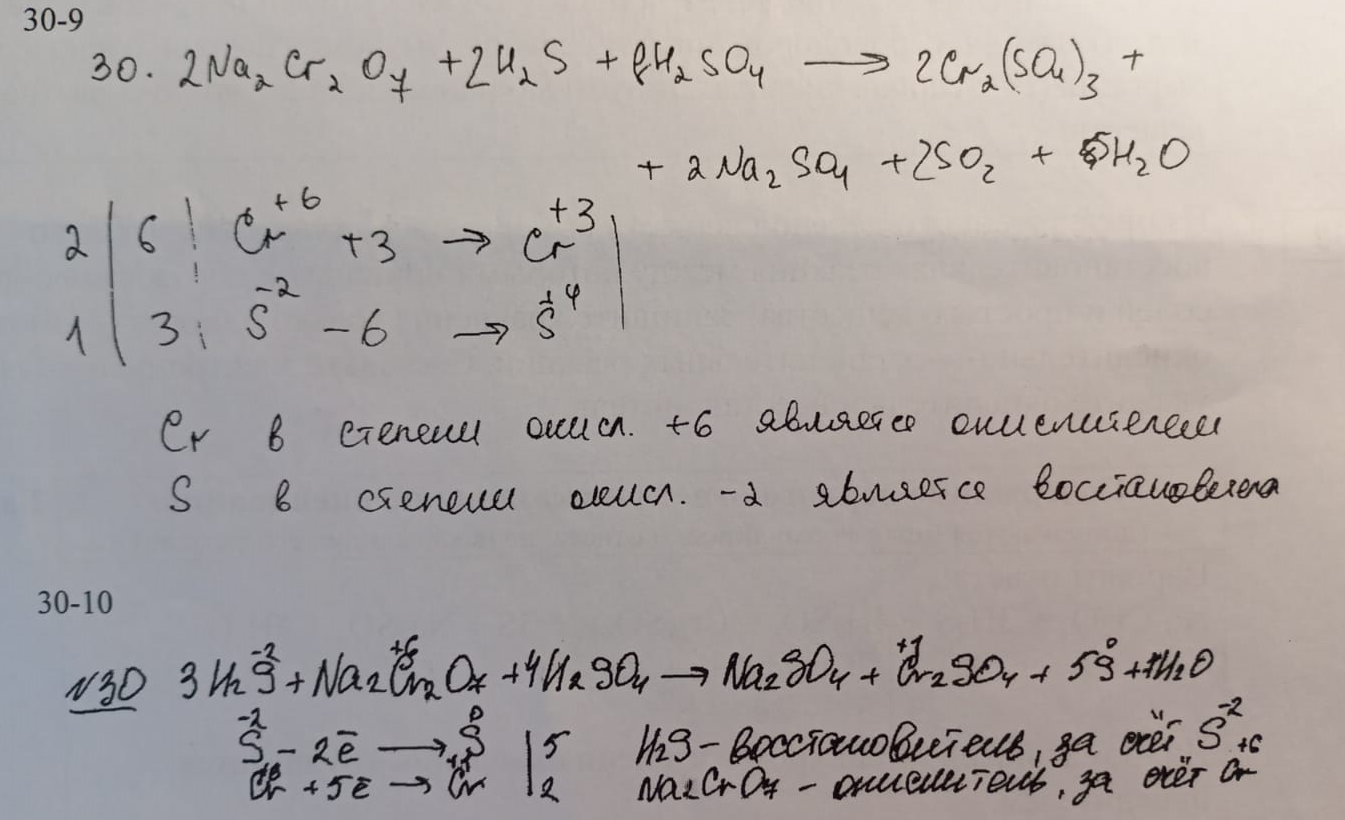 30-9
30. 2Na₂Cr₂O₇ + 2H₂S + 8H₂SO₄ → 2Cr₂(SO₄)₃ +
+ 2Na₂SO₄ + 2SO₂ + 5H₂O
2 | 6 | Cr⁺⁶ +3 → Cr⁺³ |
1 | 3 | S⁻² − 6 → S⁺⁴
Cr в степени окисл. +6 является окислителем
S в степени окисл. -2 является
30-10
N30 3H₂S⁻² + Na₂Cr₂⁺⁶O₇ + 4H₂SO₄ → Na₂SO₄ + Cr₂⁺¹SO₄ + 5S⁰ + H₂O
S⁻² − 2ē → S⁰ | 5 H₂S – восстановитель, за счёт S⁻²
Cr +5ē → Cr | 2 Na₂CrO₇ – окислитель, за счёт Cr⁺⁶